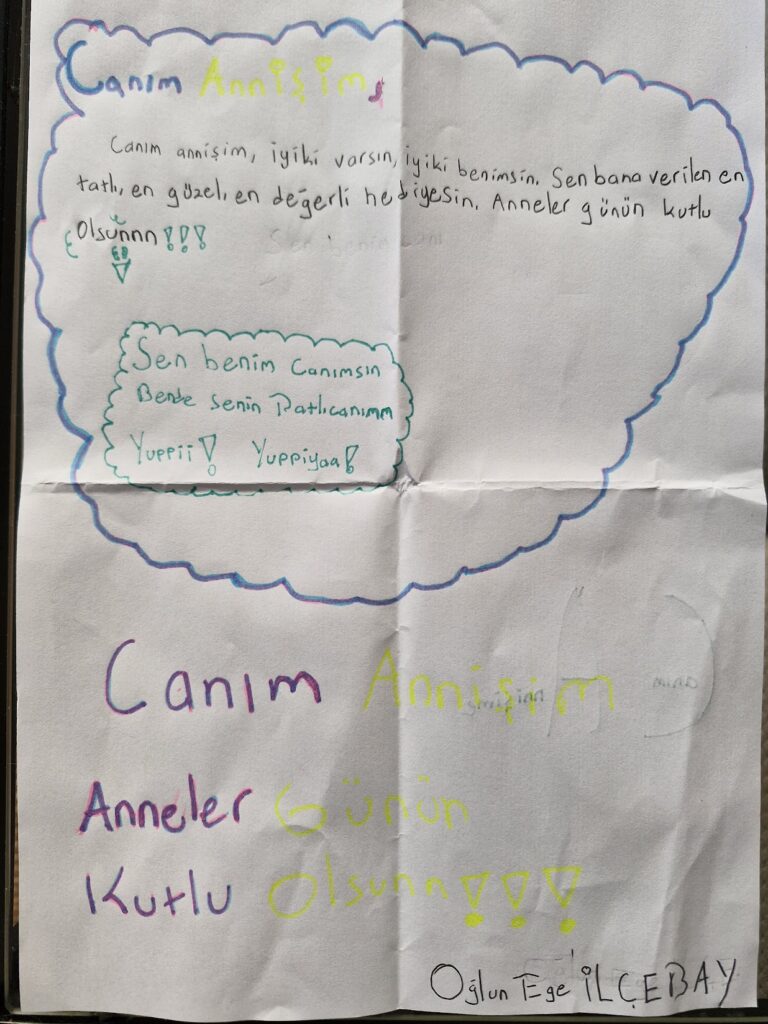 Canım Annişim,
Canım annişim, iyiki varsın, iyiki benimsin. Sen bana verilen en
tatlı, en güzel, en değerli hediyesin. Anneler günün kutlu
Olsunnn!!!
Sen benim canımsın
Bende senin Patlıcanımm
Yuppii! Yuppiyaa!
Canım Annişim
Anneler Günün
Kutlu Olsunn!!!
Oğlun Ege İLÇEBAY